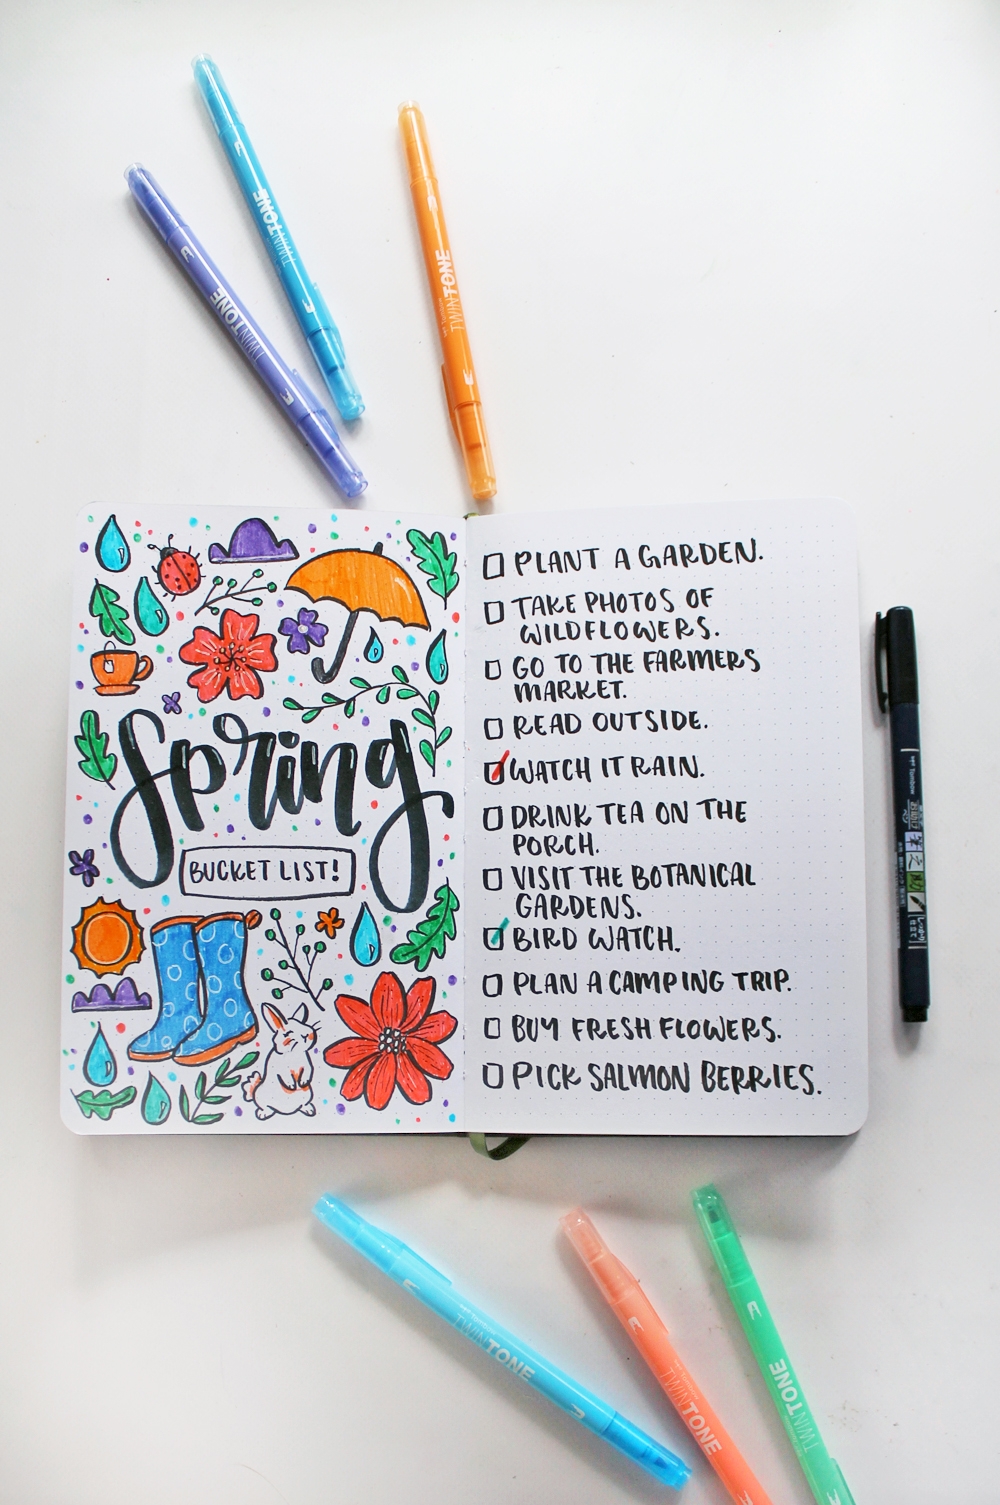 TWINTONE
TWINTONE
TWINTONE
Spring
BUCKET LIST!
PLANT A GARDEN.
TAKE PHOTOS OF
WILDFLOWERS.
GO TO THE FARMERS
MARKET.
READ OUTSIDE.
WATCH IT RAIN.
DRINK TEA ON THE
PORCH.
VISIT THE BOTANICAL
GARDENS.
BIRD WATCH.
PLAN A CAMPING TRIP.
BUY FRESH FLOWERS.
PICK SALMON BERRIES.
Tombow
TWINTONE
TWINTONE
TWINTONE